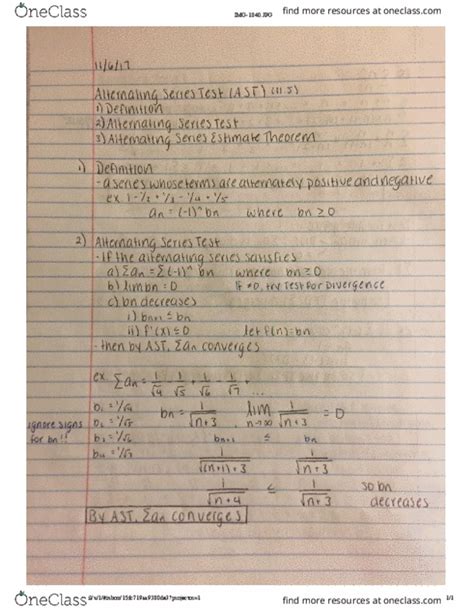 OneClass
IMG-1040.JPG
find more resources at oneclass.com
11/6/17
Alternating Series Test (AST) (11.5)
1) Definition
2) Alternating Series Test
3) Alternating Series Estimate Theorem
1) Definition
- a series whose terms are alternately positive and negative
ex. 1 - 1/2 + 1/3 - 1/4 + 1/5
an = (-1)^n bn where bn ≥ 0
2) Alternating Series Test
- If the alternating series satisfies
a) Σan = Σ(-1)^n bn where bn ≥ 0
b) lim bn = 0 If ≠0, try Test for Divergence
c) bn decreases
i) bn+1 ≤ bn
ii) f'(x) ≤ 0 let f(n) = bn
- then by AST, Σan converges
ex. Σan = 1/√4 - 1/√5 + 1/√6 - 1/√7 + ...
ignore signs for bn!!
b1 = 1/√4
b2 = 1/√5
b3 = 1/√6
b4 = 1/√7
bn = 1/√n+3 lim n→∞ 1/√n+3 = 0
bn+1 ≤ bn
1/√(n+1)+3 1/√n+3
1/√n+4 ≤ 1/√n+3 so bn decreases
By AST, Σan converges
OneClass
find more resources at oneclass.com
1/1